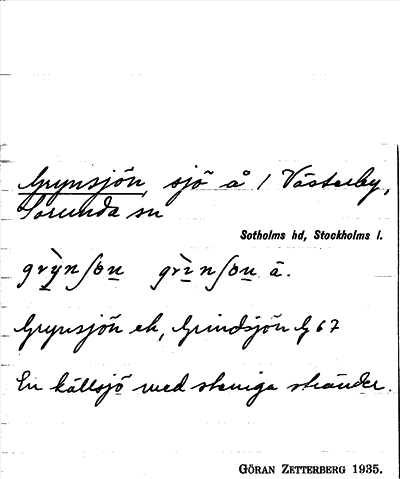 Grynsjön, sjö å 1 Västerby,
Sorunda sn
Sotholms hd, Stockholms l.
grỳnʃo̱n grìnʃo̱n ä.
Grynsjön ek, Grindsjön G 67
En källsjö med steniga stränder.
GÖRAN ZETTERBERG 1935.